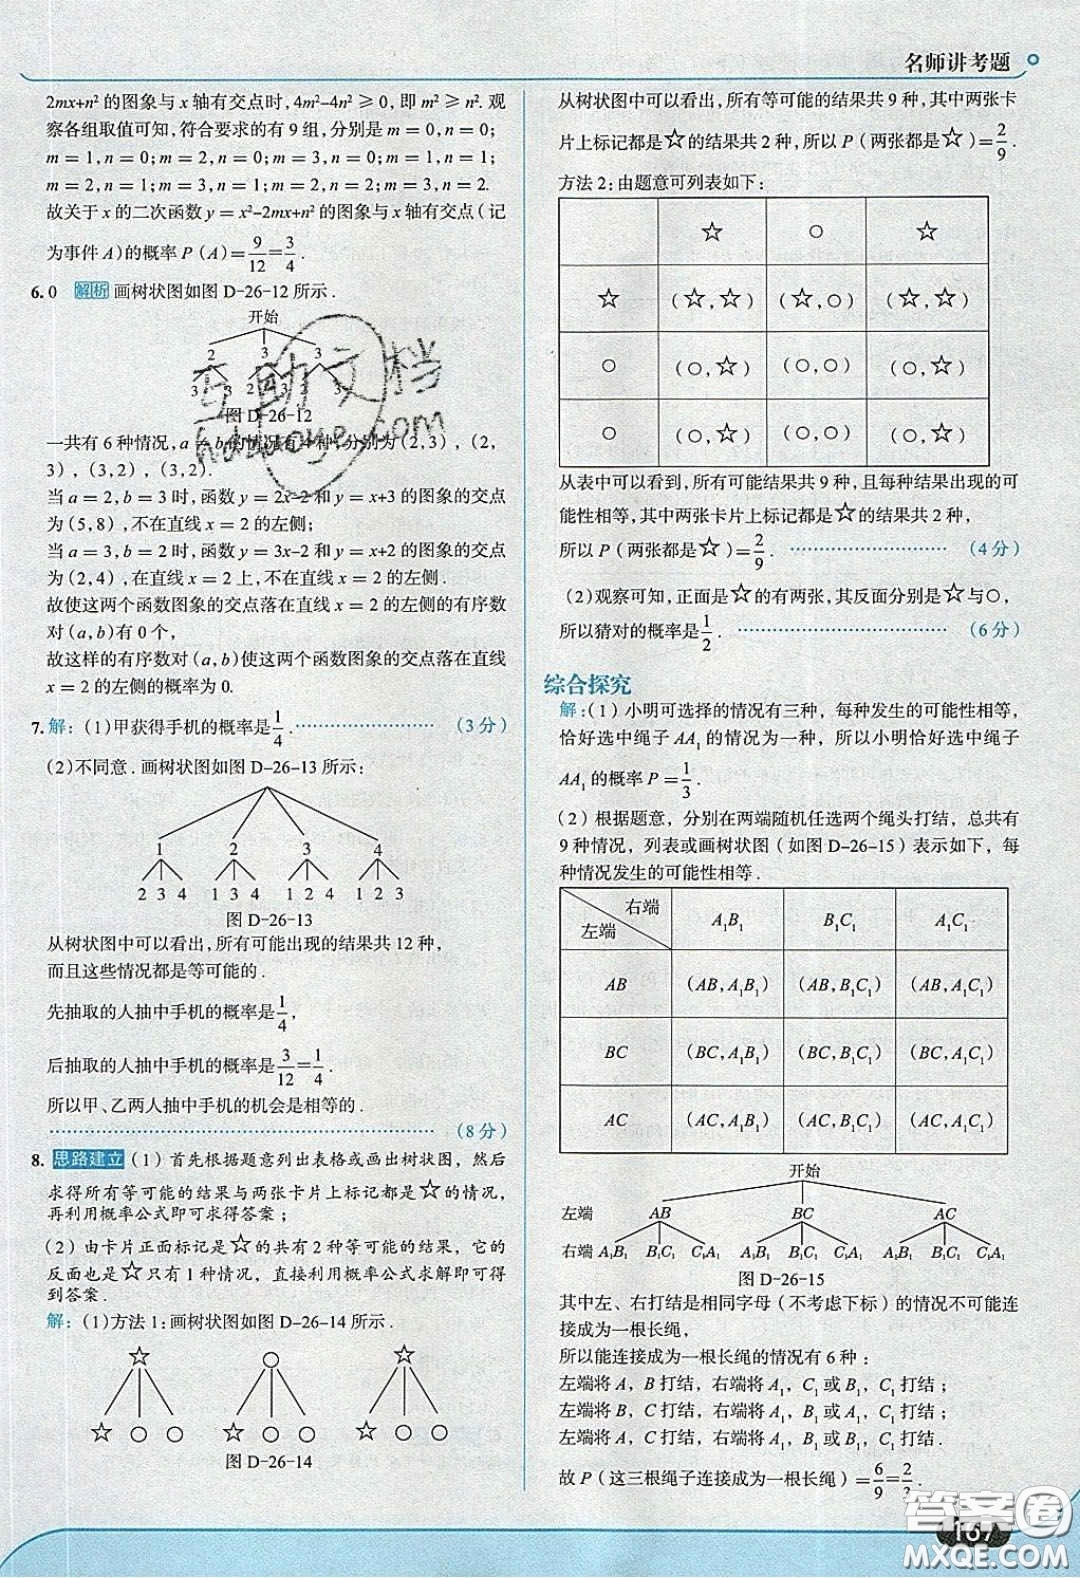 名师讲考题
2mx+n² 的图象与 x 轴有交点时,4m²-4n² ⩾ 0,即 m² ⩾ n². 观
察各组取值可知,符合要求的有 9 组,分别是 m = 0,n = 0;
m = 1,n = 0;m = 2,n = 0;m = 3,n = 0;m = 1,n = 1;
m = 2,n = 1;m = 3,n = 1;m = 2,n = 2;m = 3,n = 2.
故关于 x 的二次函数 y = x²-2mx+n² 的图象与 x 轴有交点(记
为事件 A)的概率 P(A)=9/12=3/4.
6. 0 解析 画树状图如图 D-26-12 所示.
开始
2 3 3
3 3 2 3 2 3
图 D-26-12
一共有 6 种情况,a ≠ b 的情况有 4 种,分别为(2,3),(2,
3),(3,2),(3,2).
当 a = 2,b = 3 时,函数 y = 2x-2 和 y = x+3 的图象的交点
为(5,8),不在直线 x = 2 的左侧;
当 a = 3,b = 2 时,函数 y = 3x-2 和 y = x+2 的图象的交点
为(2,4),在直线 x = 2 上,不在直线 x = 2 的左侧.
故使这两个函数图象的交点落在直线 x = 2 的左侧的有序数
对(a,b)有 0 个,
故这样的有序数对(a,b)使这两个函数图象的交点落在直线
x = 2 的左侧的概率为 0.
7. 解:(1)甲获得手机的概率是1/4. (3 分)
(2)不同意. 画树状图如图 D-26-13 所示:
1 2 3 4
2 3 4 1 3 4 1 2 4 1 2 3
图 D-26-13
从树状图中可以看出,所有可能出现的结果共 12 种,
而且这些情况都是等可能的.
先抽取的人抽中手机的概率是1/4,
后抽取的人抽中手机的概率是3/12=1/4.
所以甲、乙两人抽中手机的机会是相等的.
(8 分)
8. 思路建立 (1)首先根据题意列出表格或画出树状图,然后
求得所有等可能的结果与两张卡片上标记都是☆的情况,
再利用概率公式即可求得答案;
(2)由卡片正面标记是☆的共有 2 种等可能的结果,它的
反面也是☆只有 1 种情况,直接利用概率公式求解即可得
到答案.
解:(1)方法 1:画树状图如图 D-26-14 所示.
☆ ○ ☆
☆ ○ ○ ☆ ○ ○ ☆ ○ ○
图 D-26-14
从树状图中可以看出,所有等可能的结果共 9 种,其中两张卡
片上标记都是☆的结果共 2 种,所以 P(两张都是☆)=2/9.
方法 2:由题意可列表如下:
☆ ○ ☆
☆ (☆,☆) (☆,○) (☆,☆)
○ (○,☆) (○,○) (○,☆)
○ (○,☆) (○,○) (○,☆)
从表中可以看到,所有可能结果共 9 种,且每种结果出现的可
能性相等,其中两张卡片上标记都是☆的结果共 2 种,
所以 P(两张都是☆)=2/9. (4 分)
(2)观察可知,正面是☆的有两张,其反面分别是☆与○,
所以猜对的概率是1/2. (6 分)
综合探究
解:(1)小明可选择的情况有三种,每种发生的可能性相等,
恰好选中绳子 AA₁ 的情况为一种,所以小明恰好选中绳子
AA₁ 的概率 P = 1/3.
(2)根据题意,分别在两端随机任选两个绳头打结,总共有
9 种情况,列表或画树状图(如图 D-26-15)表示如下,每
种情况发生的可能性相等.
右端 左端 A₁B₁ B₁C₁ A₁C₁
AB (AB,A₁B₁) (AB,B₁C₁) (AB,A₁C₁)
BC (BC,A₁B₁) (BC,B₁C₁) (BC,A₁C₁)
AC (AC,A₁B₁) (AC,B₁C₁) (AC,A₁C₁)
开始
左端 AB BC AC
右端 A₁B₁ B₁C₁ C₁A₁ A₁B₁ B₁C₁ C₁A₁ A₁B₁ B₁C₁ C₁A₁
图 D-26-15
其中左、右打结是相同字母(不考虑下标)的情况不可能
连接成为一根长绳,
所以能连接成为一根长绳的情况有 6 种:
左端将 A,B 打结,右端将 A₁,C₁ 或 B₁,C₁ 打结;
左端将 B,C 打结,右端将 A₁,B₁ 或 A₁,C₁ 打结;
左端将 A,C 打结,右端将 A₁,B₁ 或 B₁,C₁ 打结.
故 P(这三根绳子连接成为一根长绳)=6/9=2/3.
167
互助文档
hdzuoye.com
答案圈
MXQE.COM